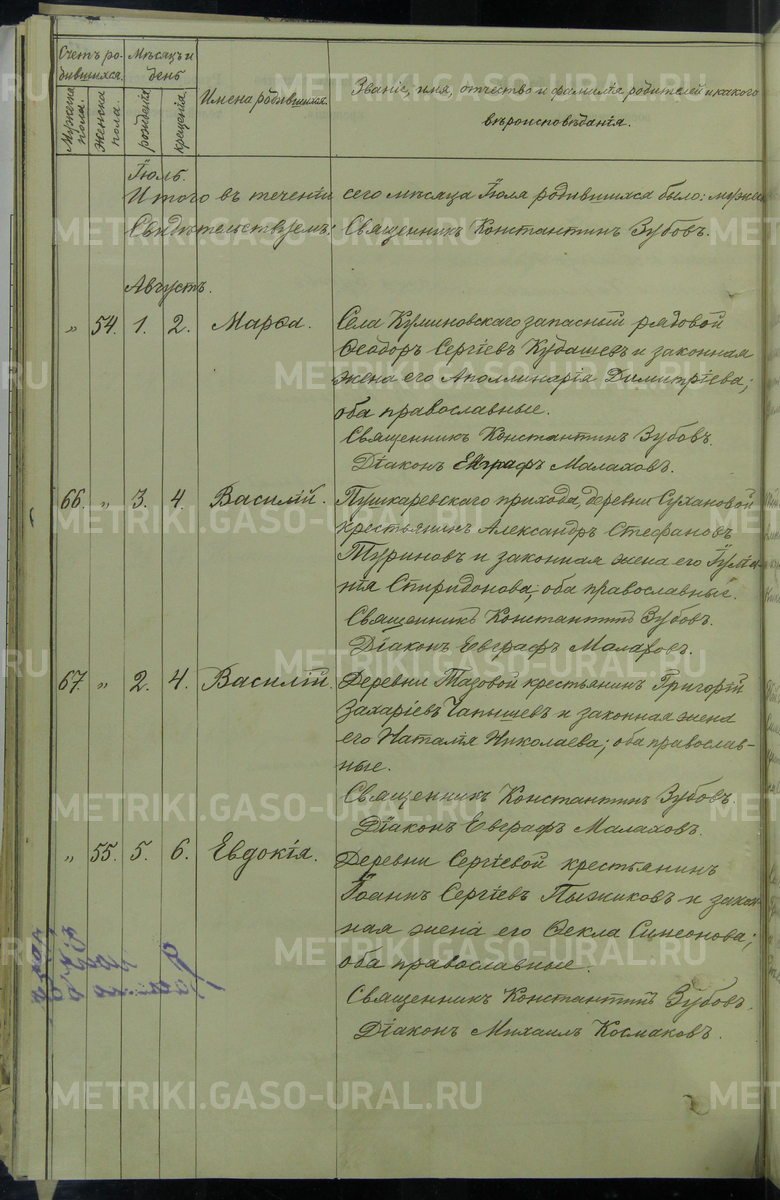 Счетъ ро-
дившихся.
Мѣсяцъ и
день
Мужска
пола.
Женска
пола.
рожденія
крещенія.
Имена родившихся.
Званіе, имя, отчество и фамилія родителей и какого
вѣроисповѣданія.
Іюль.
Итого въ теченіи сего мѣсяца Іюля родившихся было: мужеска
Свидѣтельствуемъ: Священникъ Константинъ Зубовъ.
Августъ.
„ 54. 1. 2. Марѳа. Села Куминовскаго запасный рядовой
Ѳеодоръ Сергіевъ Кубашевъ и законная
жена его Аполлинарія Димитріева;
оба православные.
Священникъ Константинъ Зубовъ.
Діаконъ Евграфъ Малаховъ.
66. „ 3. 4. Василій. Пушкаревскаго прихода, деревни Сухановой
крестьянинъ Александръ Стефановъ
Туриновъ и законная жена его Іулiа-
нія Спиридонова; оба православные.
Священникъ Константинъ Зубовъ.
Діаконъ Евграфъ Малаховъ.
67. „ 2. 4. Василій. Деревни Тазовой крестьянинъ Григорій
Захаріевъ Чапышевъ и законная жена
его Наталія Николаева; оба православ-
ные.
Священникъ Константинъ Зубовъ.
Діаконъ Евграфъ Малаховъ.
„ 55. 5. 6. Евдокія. Деревни Сергіевой крестьянинъ
Іоаннъ Сергіевъ Пыжиковъ и закон-
ная жена его Ѳекла Симеонова;
оба православные.
Священникъ Константинъ Зубовъ.
Діаконъ Михаилъ Космаковъ.
METRIKI.GASO-URAL.RU